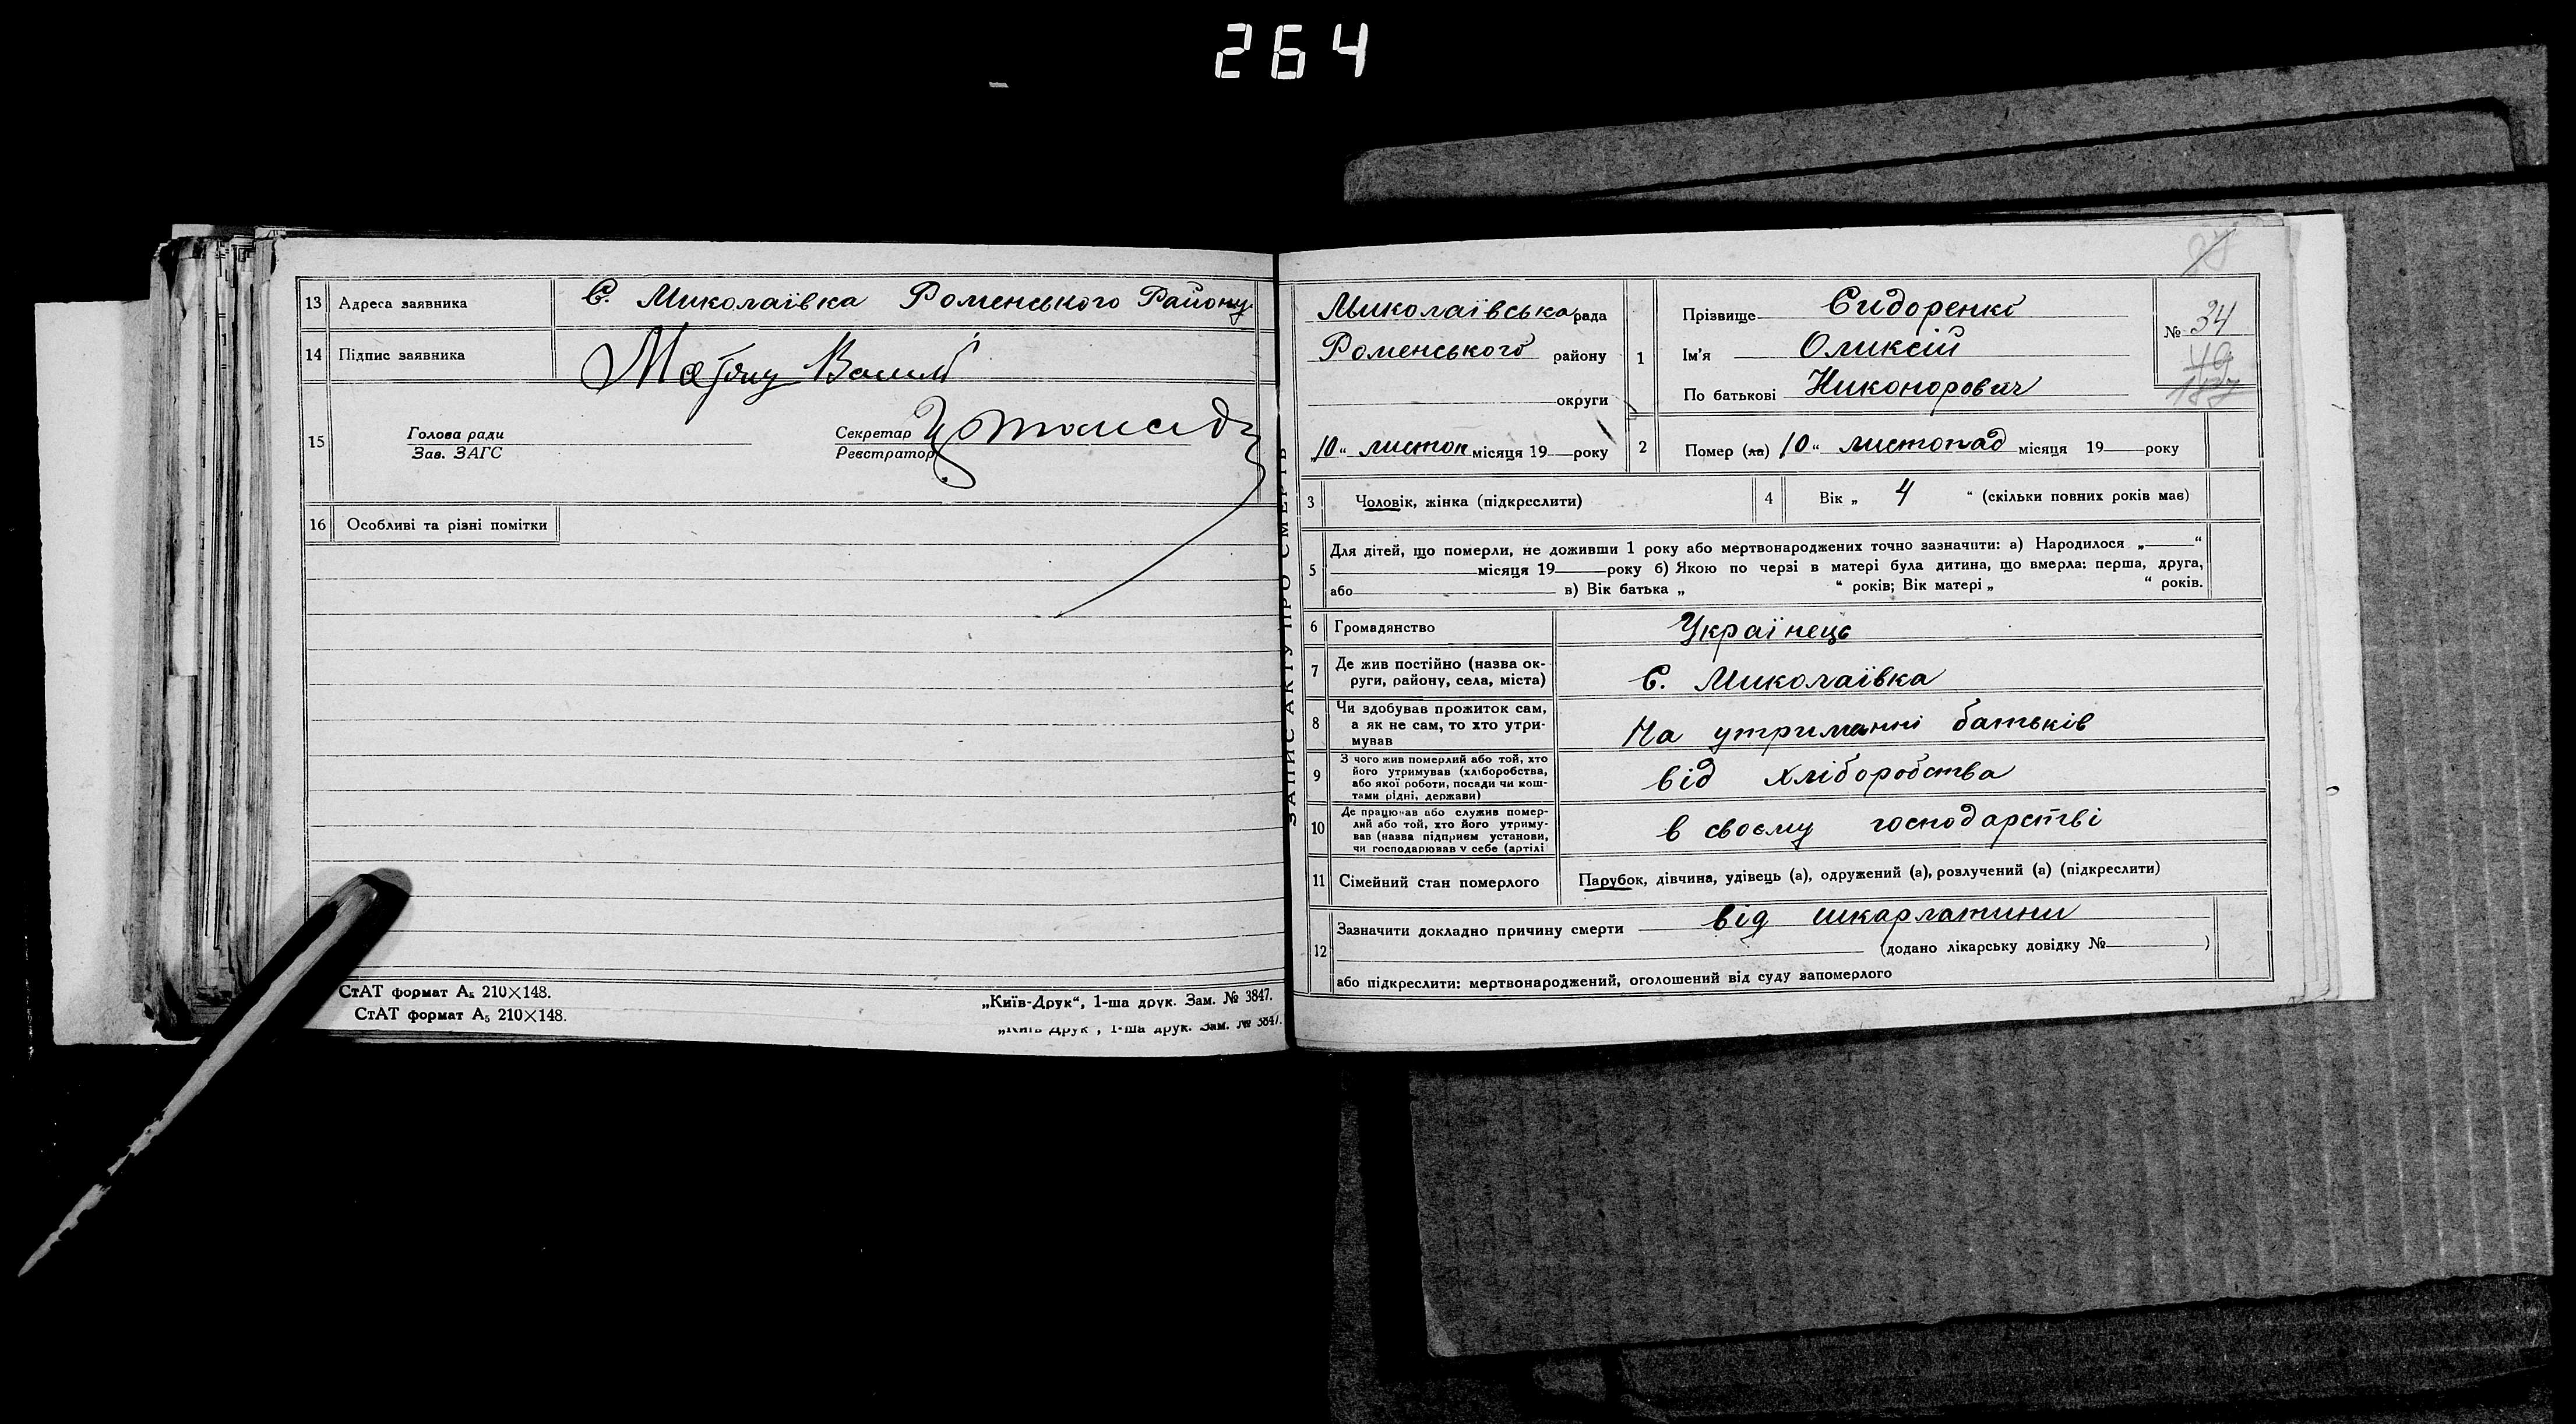 264
13 Адреса заявника С. Миколаївка Роменського Району
14 Підпис заявника
15 Голова ради Секретар
Зав. ЗАГС Реєстратор
16 Особливі та різні помітки
СтАТ формат А₅ 210×148. „Київ-Друк“, 1-ша друк. Зам. № 3847.
СтАТ формат А₅ 210×148. „Київ Друк“, 1-ша друк. Зам. № 3847.
ЗАПИС АКТУ ПРО СМЕРТЬ
Миколаївська рада
Роменського району
округи
„10“ листоп місяця 19 — року
1 Прізвище Сидоренко
Ім'я Оликсій
По батькові Никонорович
№ 34
49
2 Помер (ла) 10 “ листопад місяця 19 — року
3 Чоловік, жінка (підкреслити) 4 Вік „ 4 “ (скільки повних років має)
5 Для дітей, що померли, не доживши 1 року або мертвонароджених точно зазначити: а) Народилося „ — “
місяця 19 — року б) Якою по черзі в матері була дитина, що вмерла: перша, друга,
або в) Вік батька „ “ років; Вік матері „ “ років.
6 Громадянство Українець
7 Де жив постійно (назва ок-
руги, району, села, міста) С. Миколаївка
8 Чи здобував прожиток сам,
а як не сам, то хто утри-
мував На утриманні батьків
9 З чого жив померлий або той, хто
його утримував (хліборобства,
або якої роботи, посади чи кош-
тами рідні, держави) від хліборобства
10 Де працював або служив помер-
лий або той, хто його утриму-
вав (назва підприєм установи,
чи господарював у себе (артілі в своєму господарстві
11 Сімейний стан померлого Парубок, дівчина, удівець (а), одружений (а), розлучений (а) (підкреслити)
12 Зазначити докладно причину смерти від шкарлатини
(додано лікарську довідку № — )
або підкреслити: мертвонароджений, оголошений від суду запомерлого